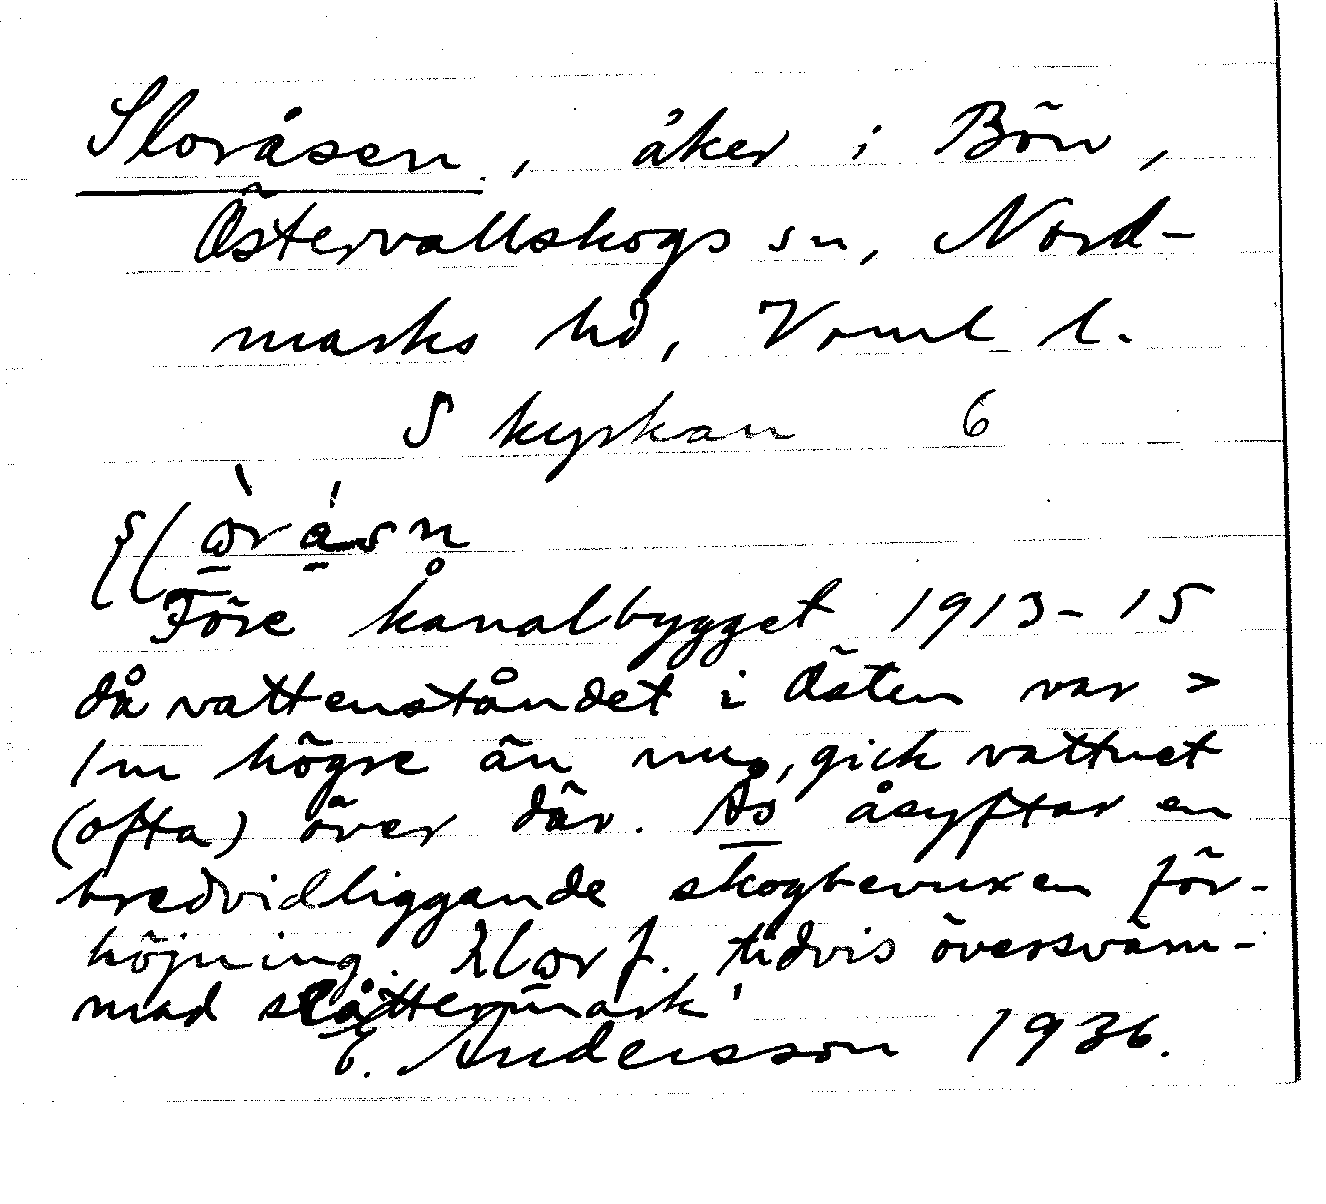 Sloråsen., åker i Bön,
Östervallskogs sn, Nord-
marks hd, Vrml l.
S kyrkan 6
Före kanalbygget 1913-15
då vattenståndet i Östen var >
1 m högre än nu, gick vattnet
(ofta) över där. Ås åsyftar en
bredvidliggande skogbevuxen för-
höjning. f. tidvis översväm-
mad slåttermark'
E. Andersson 1936.